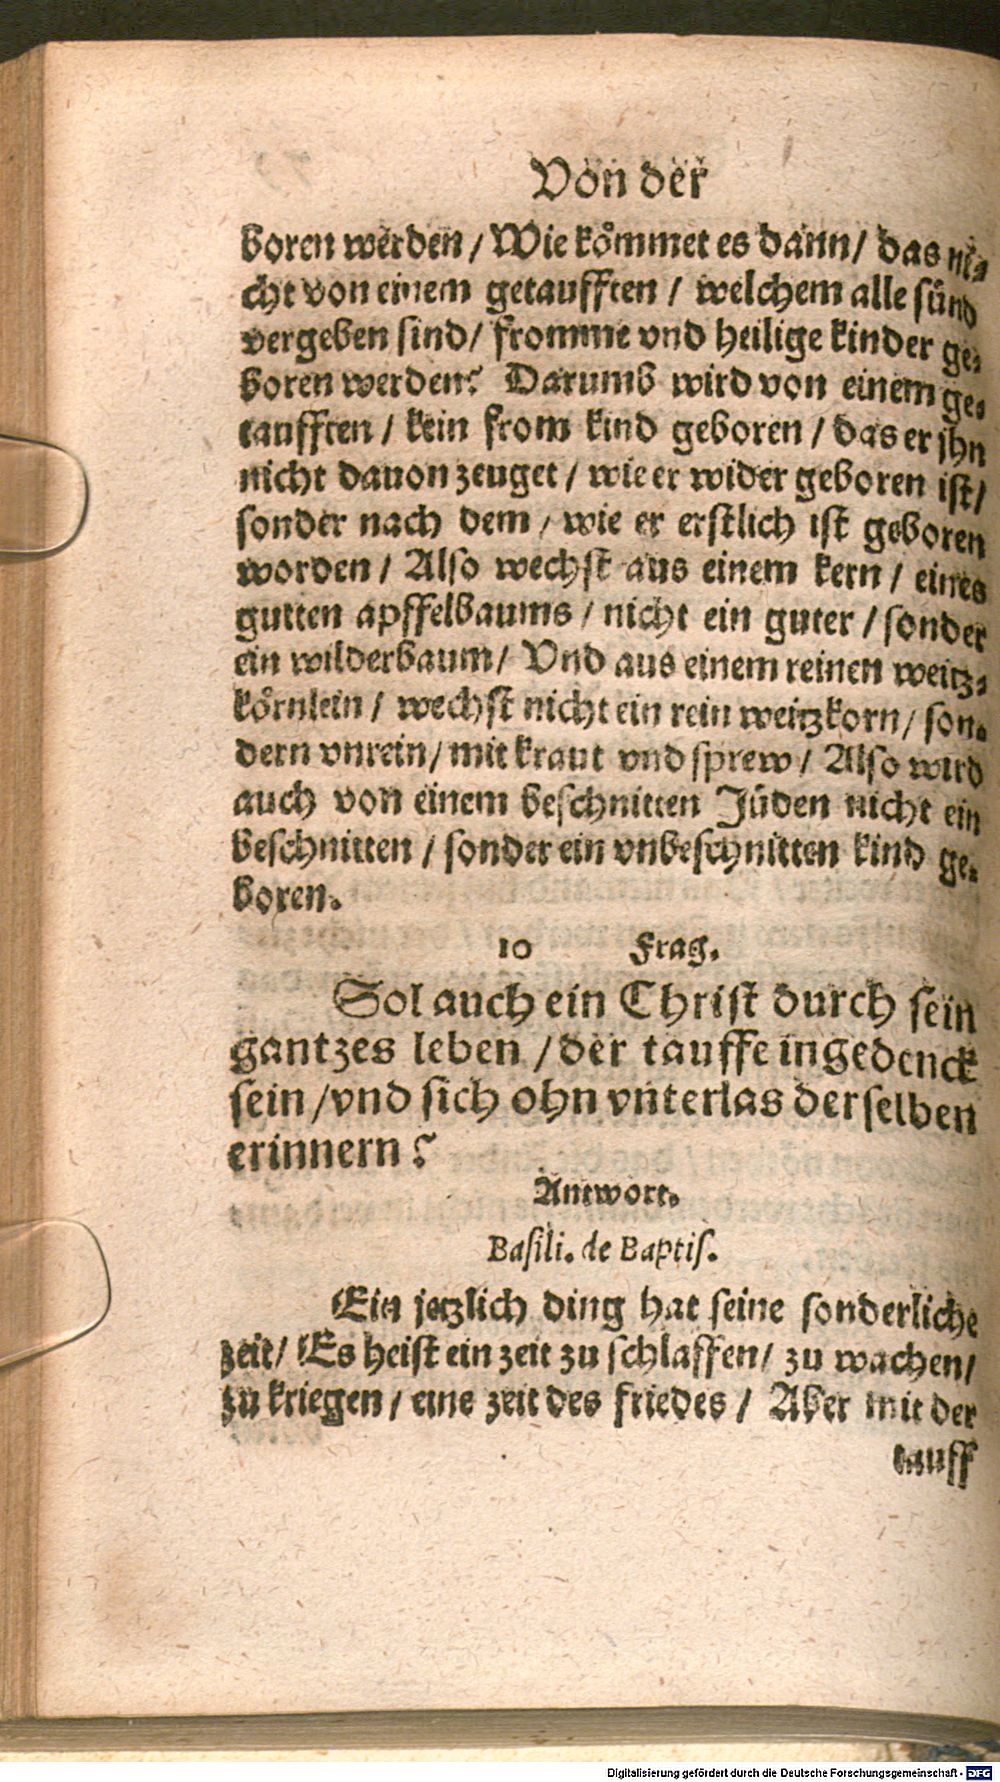 Von der
boren werden / Wie kömmet es dann / das ni-
cht von einem getaufften / welchem alle sünd
vergeben sind / fromme vnd heilige kinder ge-
boren werden? Darumb wird von einem ge-
taufften / kein from kind geboren / das er ihn
nicht dauon zeuget / wie er wider geboren ist /
sonder nach dem / wie er erstlich ist geboren
worden / Also wechst aus einem kern / eines
gutten apffelbaums / nicht ein guter / sonder
ein wilderbaum / Vnd aus einem reinen weitz-
körnlein / wechst nicht ein rein weitzkorn / son-
dern vnrein / mit kraut vnd sprew / Also wird
auch von einem beschnitten Jüden nicht ein
beschnitten / sonder ein vnbeschnitten kind ge-
boren.
10 Frag.
Sol auch ein Christ durch sein
gantzes leben / der tauffe ingedenck
sein / vnd sich ohn vnterlas derselben
erinnern?
Antwort.
Basili. de Baptis.
Ein jetzlich ding hat seine sonderliche
zeit / Es heist ein zeit zu schlaffen / zu wachen /
zu kriegen / eine zeit des friedes / Aber mit der
tauff
Digitalisierung gefördert durch die Deutsche Forschungsgemeinschaft - DFG